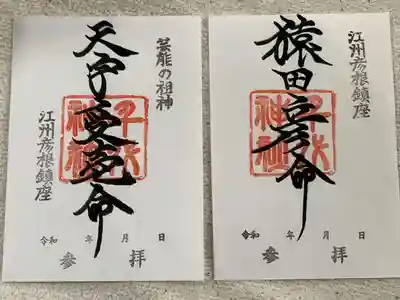 芸能の祖神
天宇受売命
千代
神社
江州彦根鎮座
令和 年 月 日
参拝
江州彦根鎮座
猿田彦命
千代
神社
令和 年 月 日
参拝